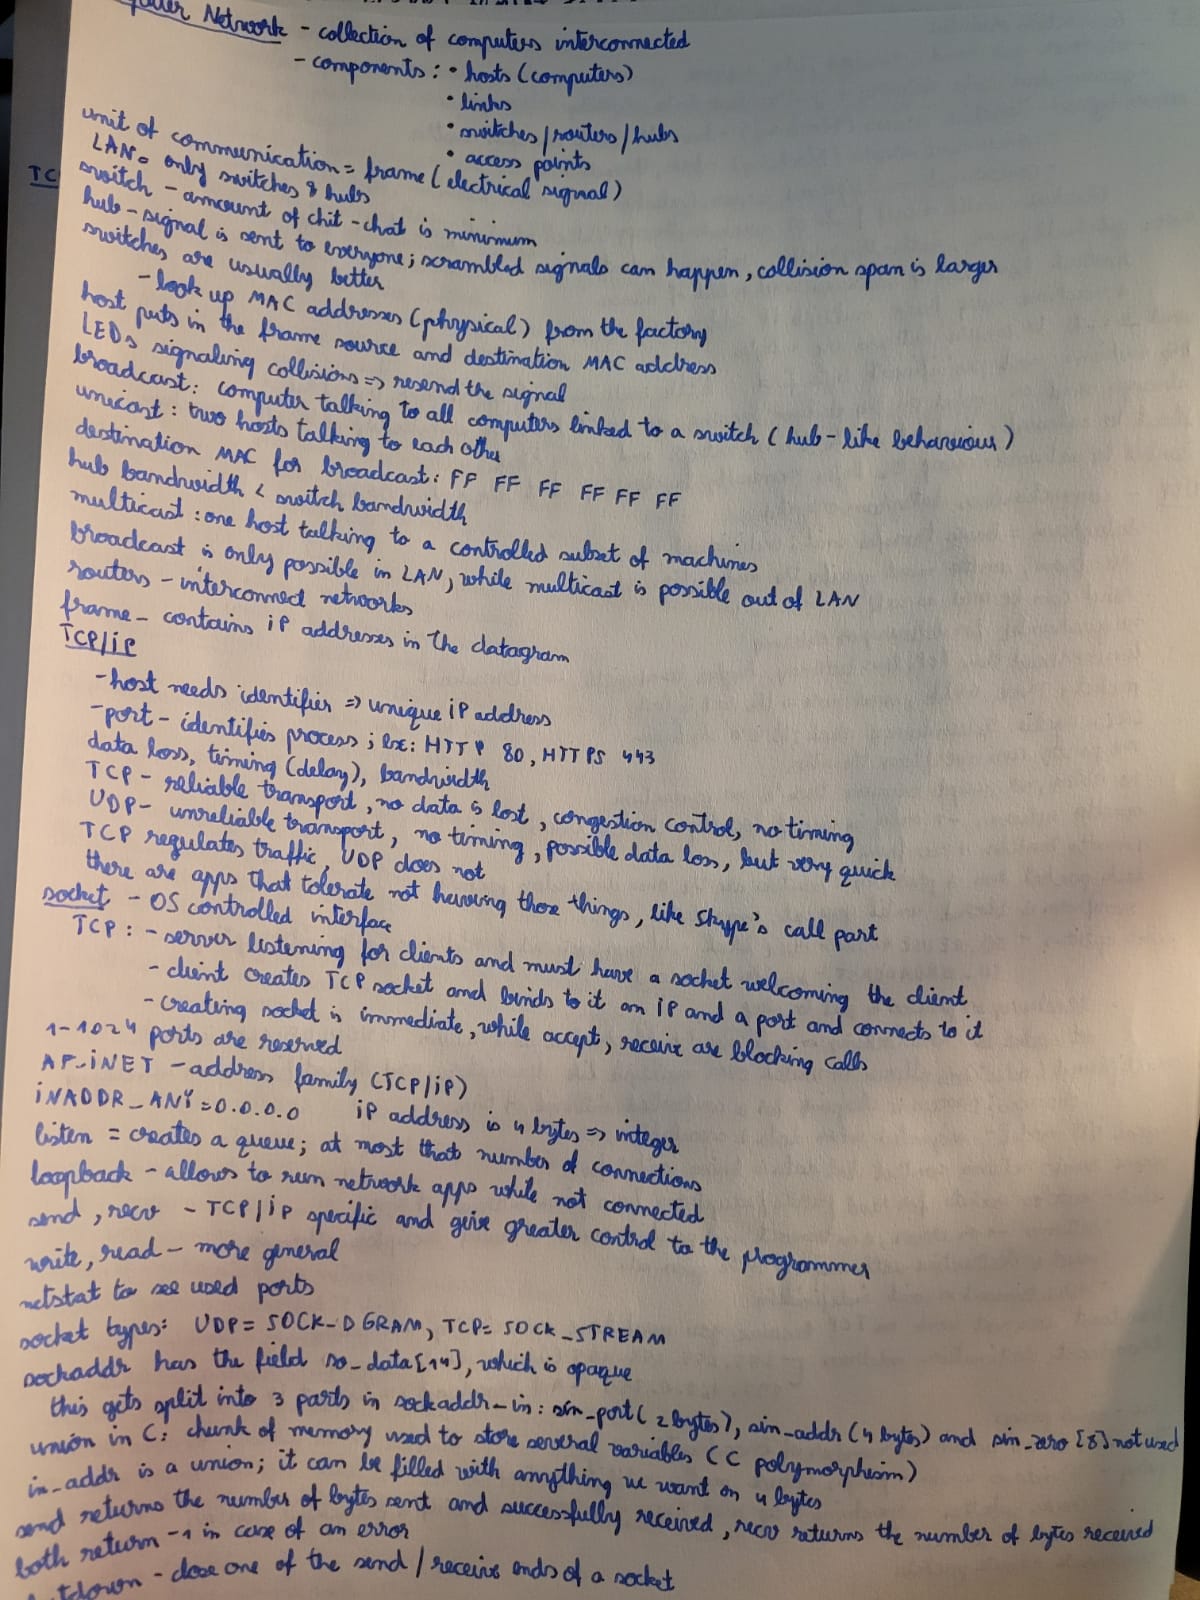 Network - collection of computers interconnected
- components: • hosts (computers)
• links
• switches/routers/hubs
• access points
unit of communication = frame (electrical signal)
LAN = only switches & hubs
TC
switch - amount of chit-chat is minimum
hub - signal is sent to everyone; scrambled signals can happen, collision span is larger
switches are usually better
- look up MAC addresses (physical) from the factory
host puts in the frame source and destination MAC address
LEDs signaling collisions => resend the signal
broadcast: computer talking to all computers linked to a switch (hub-like behaviour)
unicast: two hosts talking to each other
destination MAC for broadcast: FF FF FF FF FF FF
hub bandwidth < switch bandwidth
multicast: one host talking to a controlled subset of machines
broadcast is only possible in LAN, while multicast is possible out of LAN
routers - interconnect networks
frame - contains iP addresses in the datagram
TCP/iP
- host needs identifier => unique iP address
- port - identifies process; ex: HTTP 80, HTTPS 443
data loss, timing (delay), bandwidth
TCP - reliable transport, no data is lost, congestion control, no timing
UDP - unreliable transport, no timing, possible data loss, but very quick
TCP regulates traffic, UDP does not
there are apps that tolerate not having those things, like Skype's call part
socket - OS controlled interface
TCP: - server listening for clients and must have a socket welcoming the client
- client creates TCP socket and binds to it an iP and a port and connects to it
- creating socket is immediate, while accept, receive are blocking calls
1-1024 ports are reserved
AF_iNET - address family (TCP/iP)
iNADDR_ANY = 0.0.0.0 iP address is 4 bytes => integer
listen = creates a queue; at most that number of connections
loopback - allows to run network apps while not connected
send, recv - TCP/iP specific and give greater control to the programmer
write, read - more general
netstat to see used ports
socket types: UDP = SOCK_DGRAM, TCP = SOCK_STREAM
sockaddr has the field sa_data[14], which is opaque
this gets split into 3 parts in sockaddr_in: sin_port (2 bytes), sin_addr (4 bytes) and sin_zero [8] not used
union in C: chunk of memory used to store several variables (C polymorphism)
in_addr is a union; it can be filled with anything we want on 4 bytes
send returns the number of bytes sent and successfully received, recv returns the number of bytes received
both return -1 in case of an error
shutdown - close one of the send/receive ends of a socket